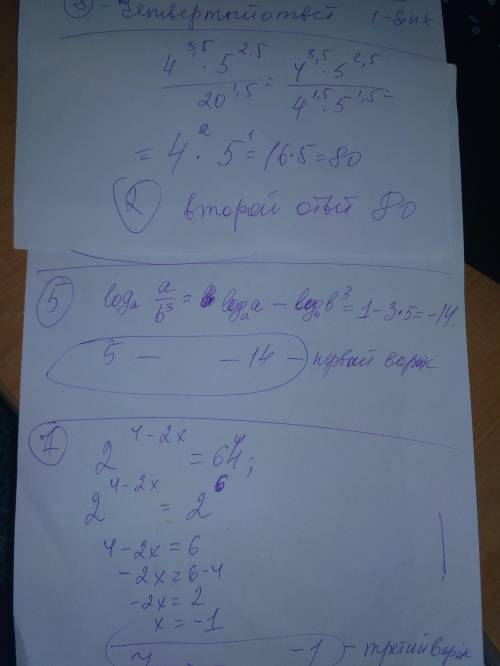 ③ - Четвертый ответ 1-sinx
4^3,5 · 5^2,5 / 20^1,5 = 4^3,5 · 5^2,5 / 4^1,5 · 5^1,5 =
= 4^2 · 5^1 = 16·5 = 80
② второй ответ 80
⑤ log_a a/b^3 = log_a a - log_a b^3 = 1-3·5=-14
5 — -14 — первый вариж
⑦
2^4-2x = 64;
2^4-2x = 2^6
4-2x=6
-2x=6-4
-2x=2
x=-1
7 -1 - третий варіж